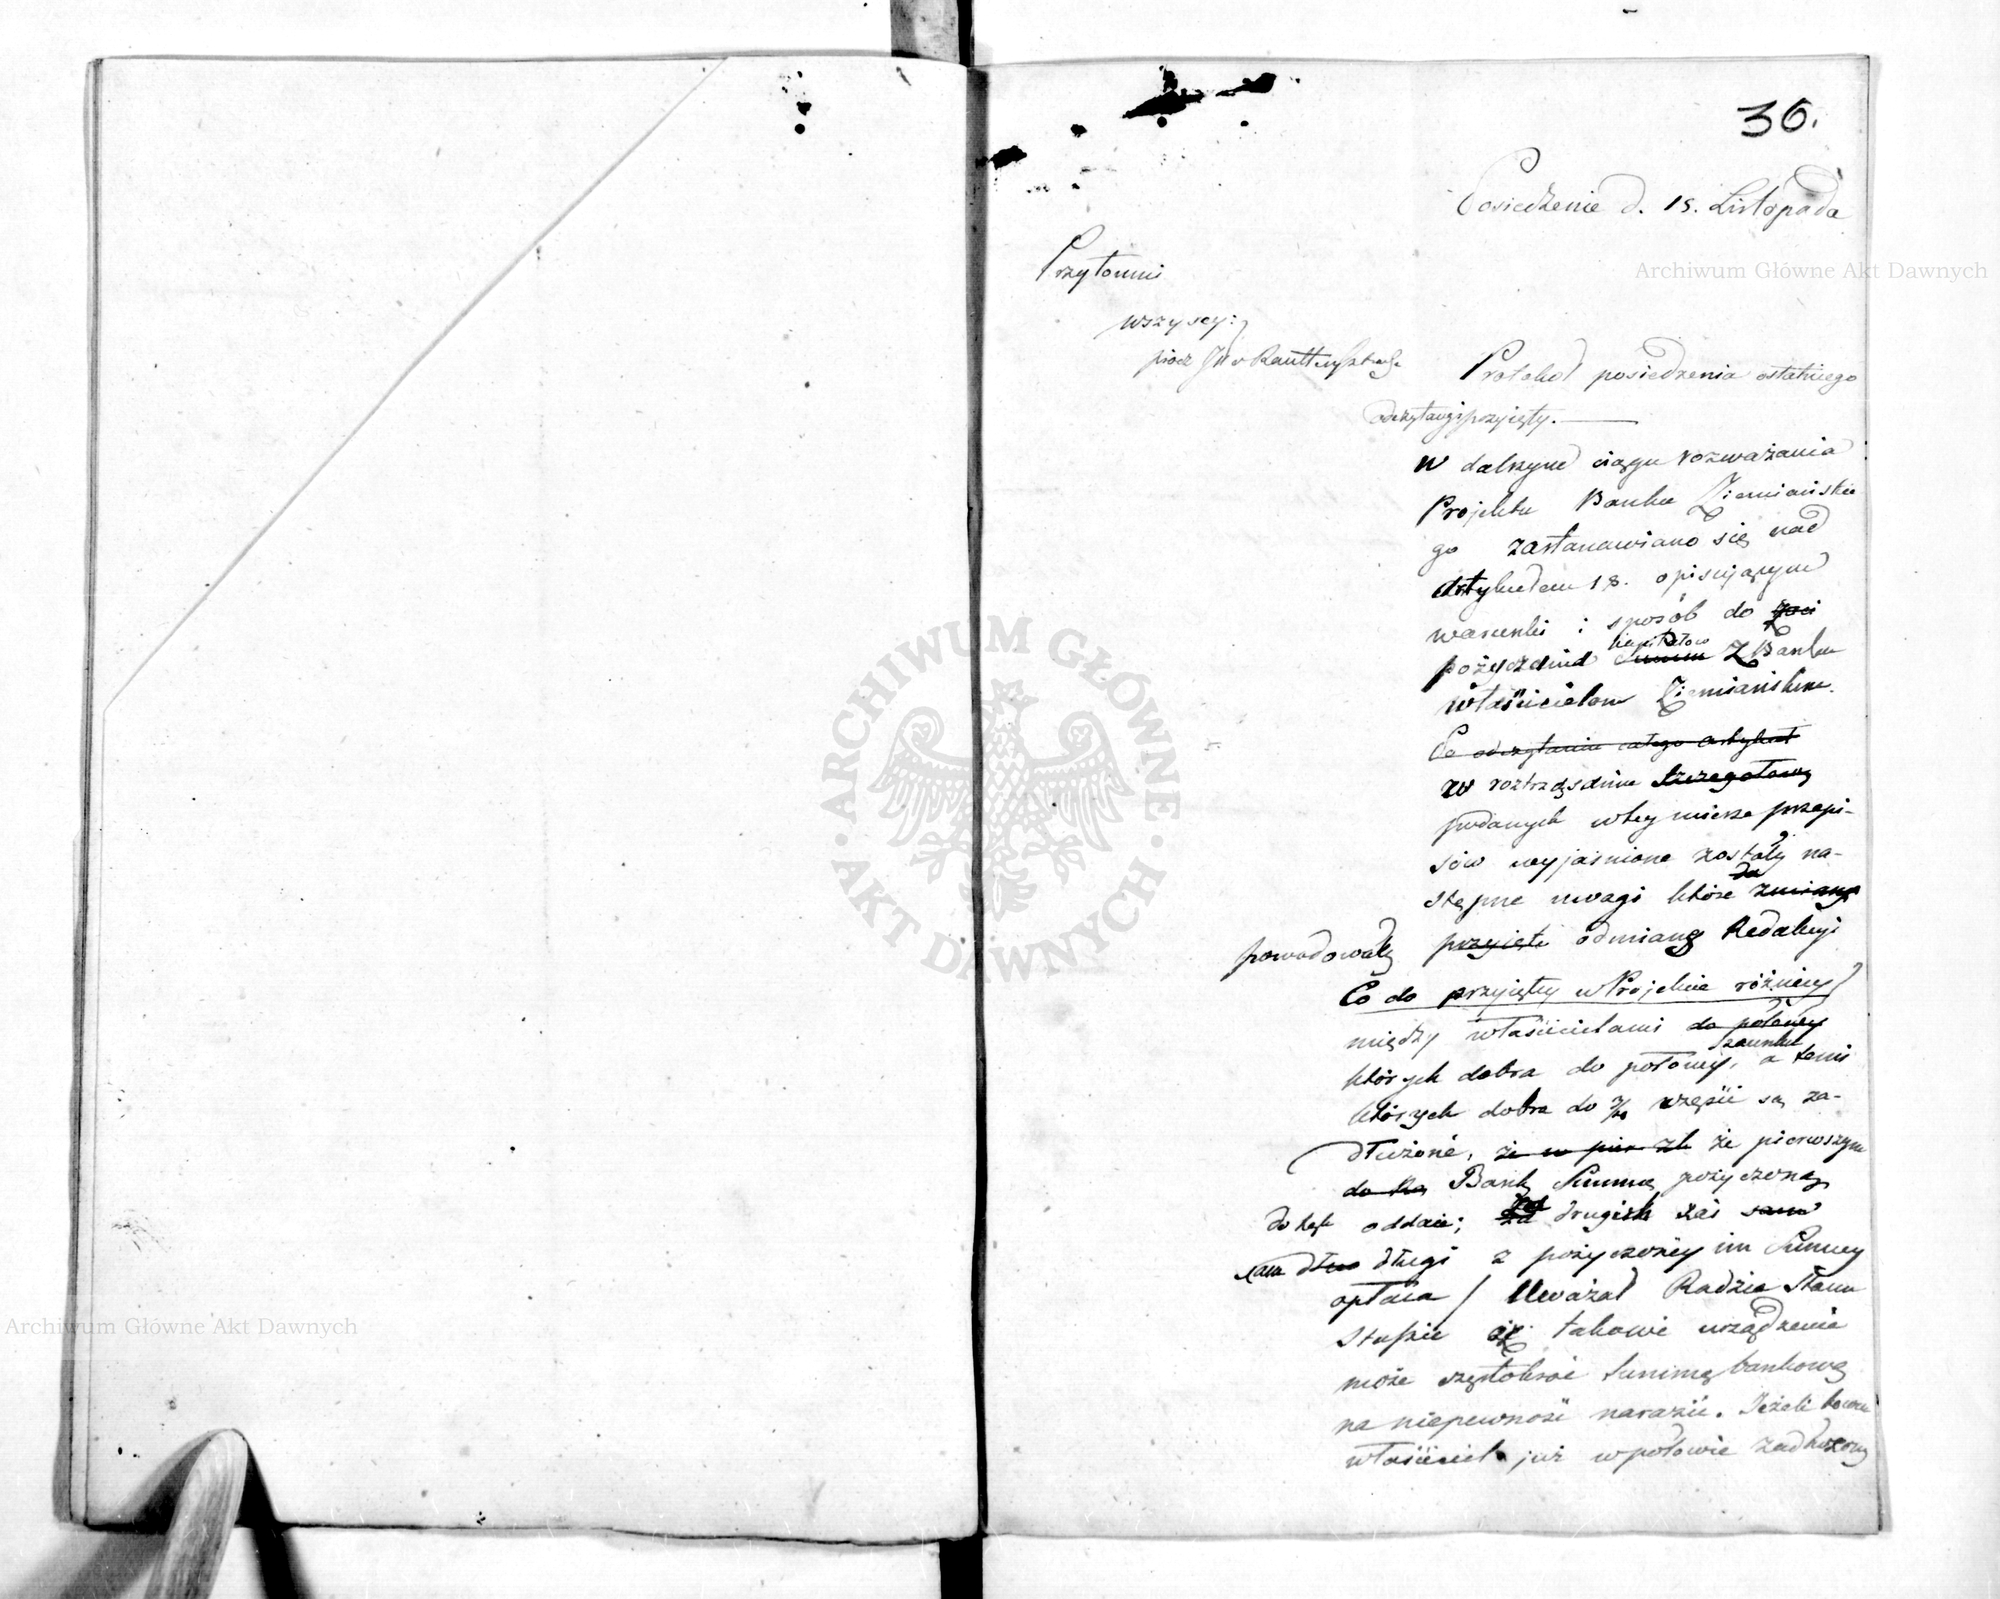 36.
Posiedzenie d. 15. Listopada
Przytomni
wszyscy:
prócz JW
Protokół posiedzenia ostatniego
odczytany i przyięty.
W dalszym ciągu rozważania
Projektu Banku Ziemiańskie
go zastanawiano się nad
Artykułem 18. opisującym
warunki i sposób do
kapitałów
pożyczania Summ z Banku
właścicielom Ziemiańskim.
Po odczytaniu całego artykułu
w roztrząsaniu szczegołowy
podanych w tey mierze przepi-
sów wyjaśnione zostały na-
stępne uwagi które do zmiany
powodowały przyięte odmianę Redakcyi
Co do przyiętey w Projekcie różnicy
między właścicielami do połowy
szacunku
których dobra do połowy, a temi
których dobra do części są za-
dłużone, że w pier że pierwszym
do Rą Bank Summę pożyczoną
do rąk oddaie; za drugich zaś sam
sam dłu długi z pożyczoney im Summy
opłaca / Uważał Radzca Stanu
że takowe urządzenie
może częstokroć summę bankową
na niepewność narazić. Jeżeli bowiem
właściciel już w połowie zadłużony
Archiwum Główne Akt Dawnych
Archiwum Główne Akt Dawnych
· ARCHIWUM GŁÓWNE · AKT DAWNYCH